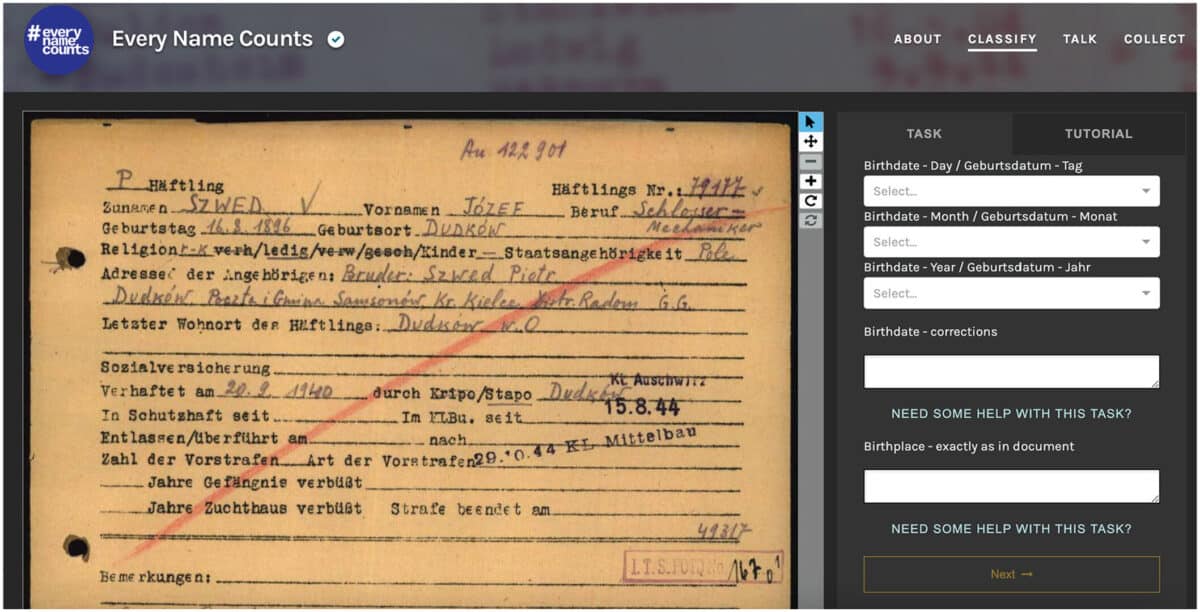 #every
name
counts
Every Name Counts
ABOUT CLASSIFY TALK COLLECT
Au 122901
P Häftling Häftlings Nr.: 79177
Zunamen SZWED V Vornamen JÓZEF Beruf Schlosser =
Mechaniker
Geburtstag 16.8.1896 Geburtsort DUDKÓW
Religion r-k verh/ledig/verw/gesch/Kinder — Staatsangehörigkeit Pole
Adresse der Angehörigen: Bruder: Szwed Piotr
Dudków, Poczta i Gmina Samsonów, Kr. Kielce, Distr. Radom G.G.
Letzter Wohnort des Häftlings: Dudków w.O
Sozialversicherung
Verhaftet am 20.9.1940 durch Kripo/Stapo Dudków
KL Auschwitz
15.8.44
In Schutzhaft seit Im KLBu. seit
Entlassen/überführt am nach
29.10.44 KL Mittelbau
Zahl der Vorstrafen Art der Vorstrafen
Jahre Gefängnis verbüßt
Jahre Zuchthaus verbüßt Strafe beendet am
49317
I.T.S. FOTO No 167
Bemerkungen:
TASK TUTORIAL
Birthdate - Day / Geburtsdatum - Tag
Select...
Birthdate - Month / Geburtsdatum - Monat
Select...
Birthdate - Year / Geburtsdatum - Jahr
Select...
Birthdate - corrections
NEED SOME HELP WITH THIS TASK?
Birthplace - exactly as in document
NEED SOME HELP WITH THIS TASK?
Next →